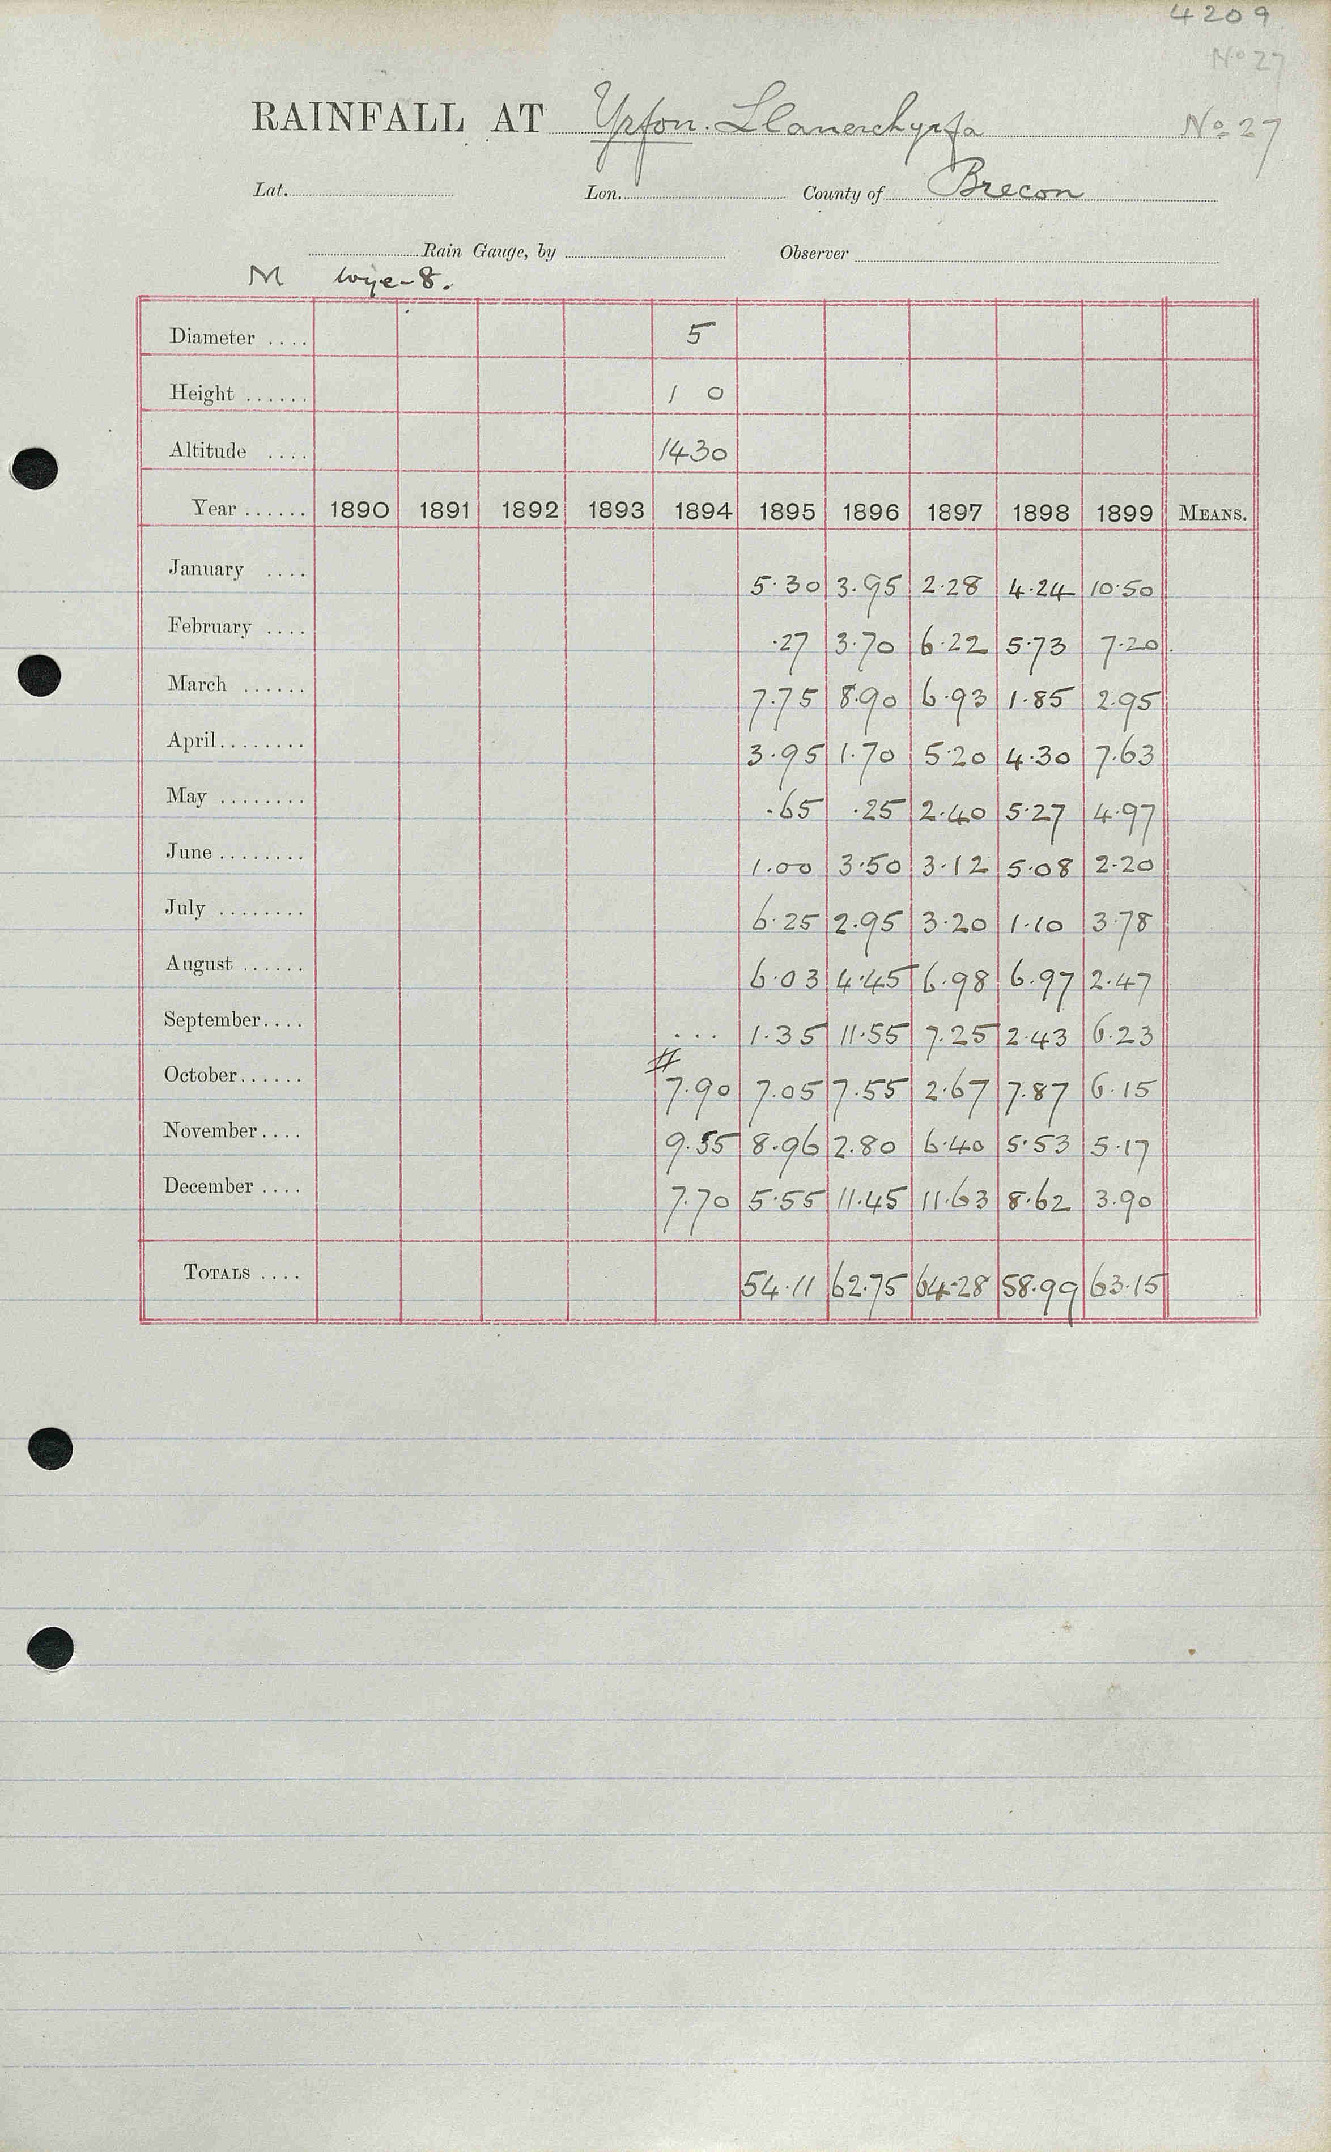 4209
No 27
RAINFALL AT Yrfon. Llanerchyrfa No 27
Lat. Lon. County of Brecon
Rain Gauge, by Observer
M Wye-8.
Diameter .... 5
Height ...... 1 0
Altitude .... 1430
Year ...... 1890 1891 1892 1893 1894 1895 1896 1897 1898 1899 MEANS.
January .... 5.30 3.95 2.28 4.24 10.50
February .... .27 3.70 6.22 5.73 7.20
March ...... 7.75 8.90 6.93 1.85 2.95
April........ 3.95 1.70 5.20 4.30 7.63
May ........ .65 .25 2.40 5.27 4.97
June ........ 1.00 3.50 3.12 5.08 2.20
July ........ 6.25 2.95 3.20 1.10 3.78
August ...... 6.03 4.45 6.98 6.97 2.47
September.... ... 1.35 11.55 7.25 2.43 6.23
October...... # 7.90 7.05 7.55 2.67 7.87 6.15
November.... 9.55 8.96 2.80 6.40 5.53 5.17
December .... 7.70 5.55 11.45 11.63 8.62 3.90
TOTALS .... 54.11 62.75 64.28 58.99 63.15